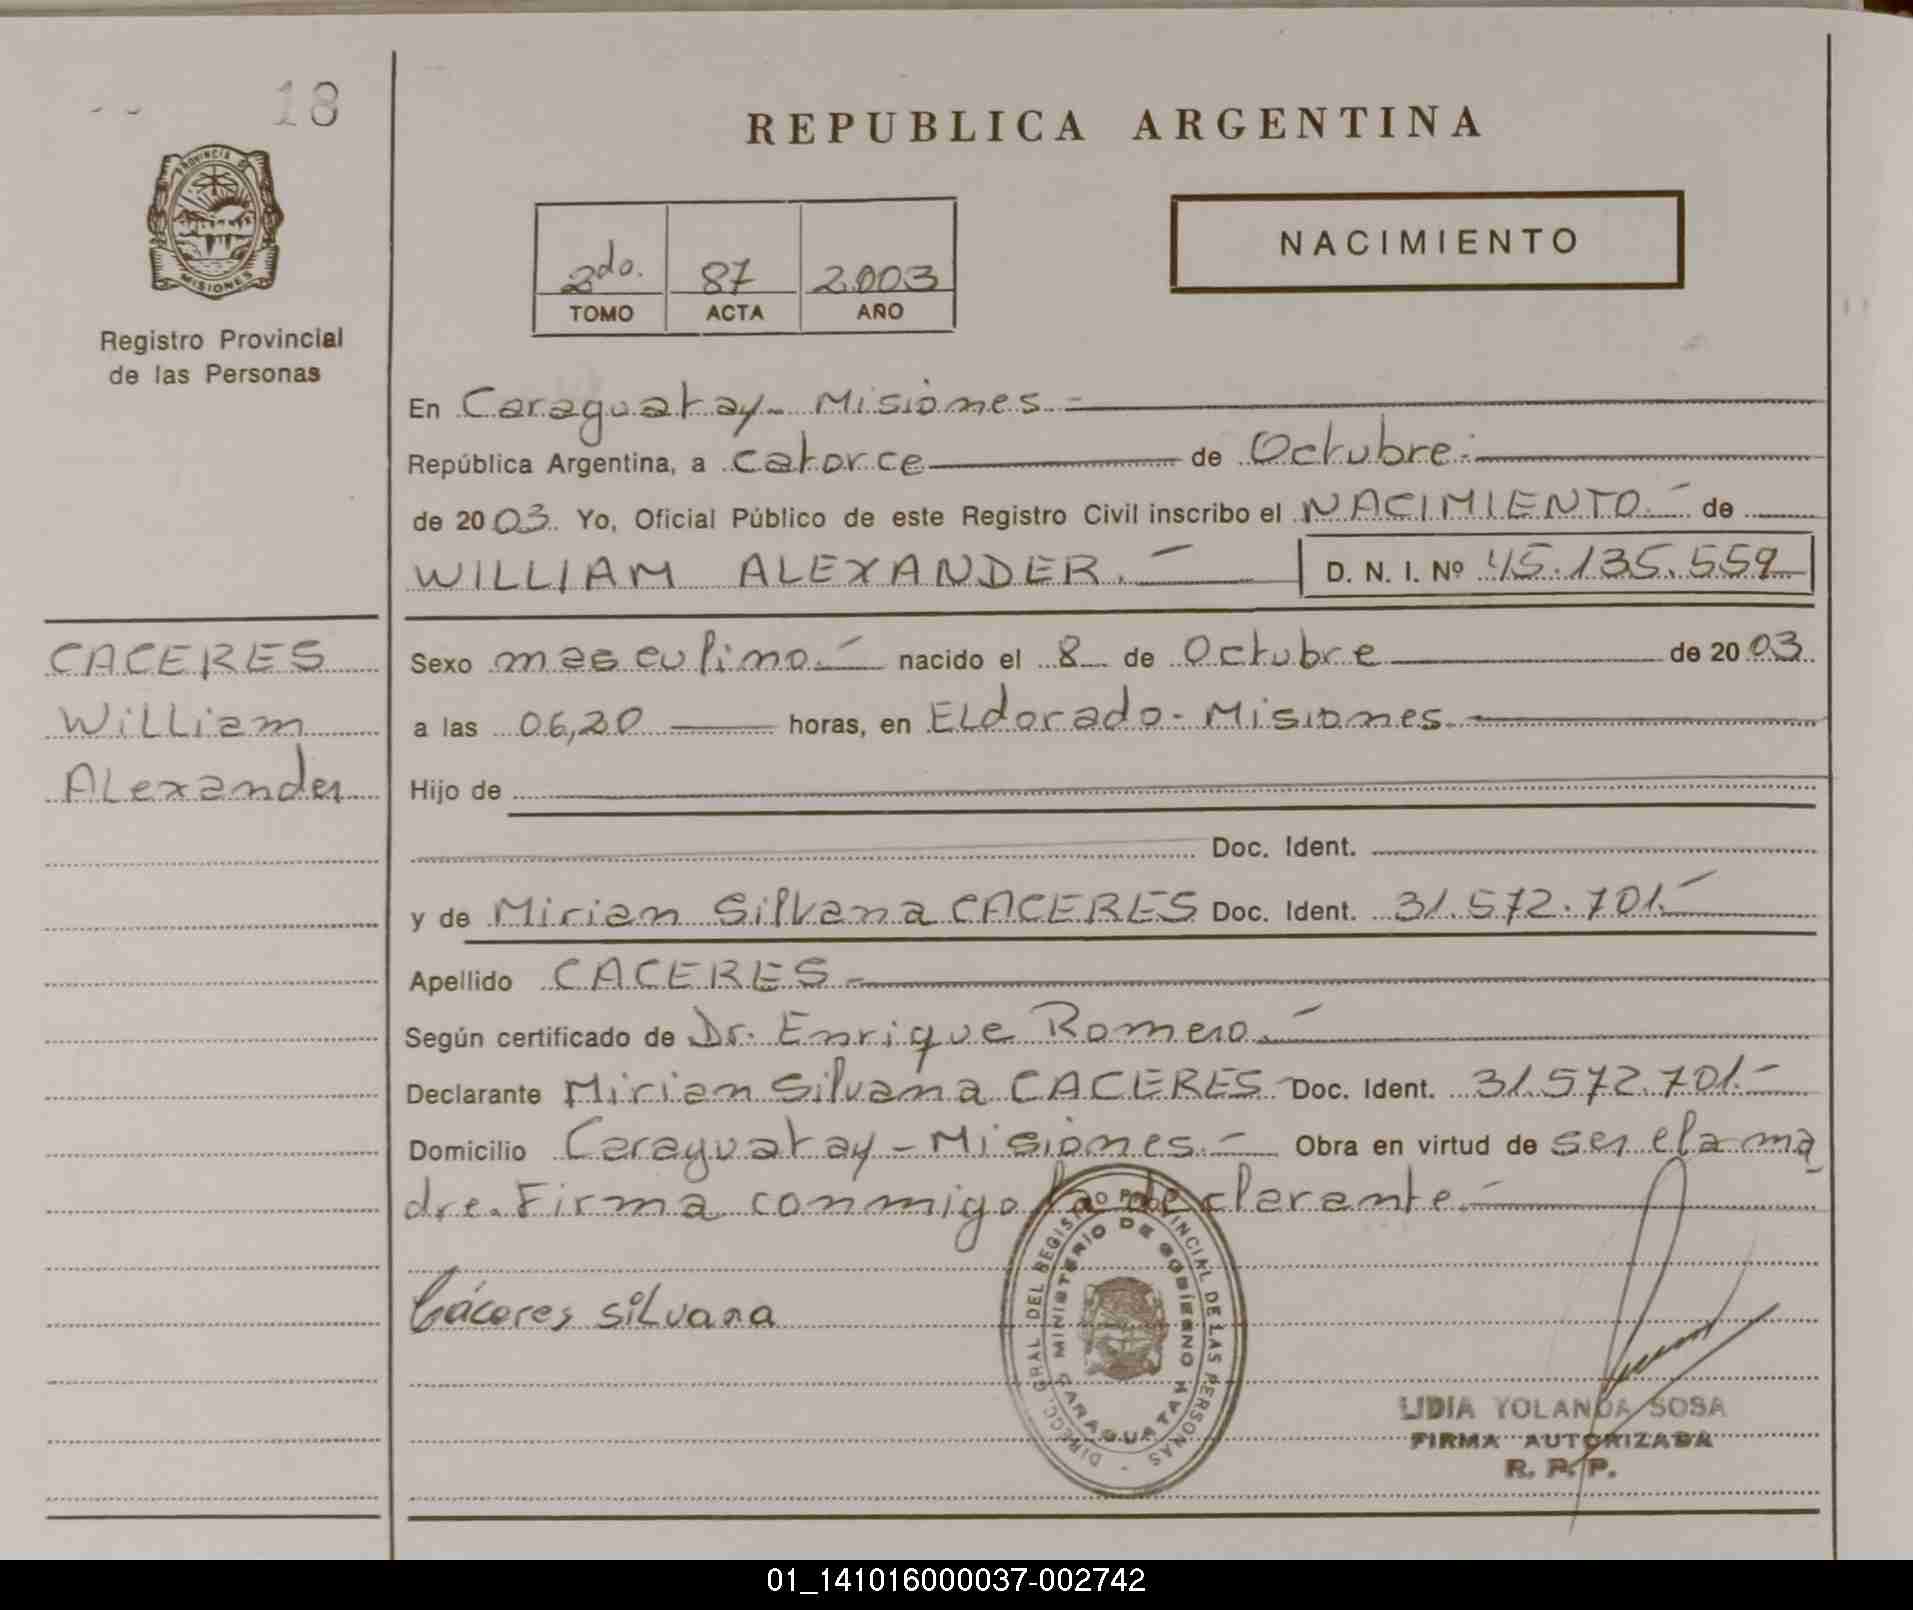 18
PROVINCIA DE
MISIONES
Registro Provincial
de las Personas
CACERES
William
Alexander
REPUBLICA ARGENTINA
2do. 87 2.003
TOMO ACTA AÑO
NACIMIENTO
En Caraguatay - Misiones.-
República Argentina, a catorce de Octubre.-
de 2003. Yo, Oficial Público de este Registro Civil inscribo el NACIMIENTO.- de
WILLIAM ALEXANDER.- D. N. I. Nº 45.135.559
Sexo masculino.- nacido el 8 de Octubre de 2003
a las 06,20 horas, en Eldorado - Misiones.
Hijo de
Doc. Ident.
y de Mirian Silvana CACERES Doc. Ident. 31.572.701.-
Apellido CACERES.-
Según certificado de Dr. Enrique Romero.-
Declarante Mirian Silvana CACERES- Doc. Ident. 31.572.701.-
Domicilio Caraguatay - Misiones.- Obra en virtud de ser el la ma
dre. Firma conmigo la declarante.-
Cáceres silvana
DIRECC. GRAL DEL REGISTRO PROVINCIAL DE LAS PERSONAS -
MINISTERIO DE GOBIERNO
CARAGUATAY
LIDIA YOLANDA SOSA
FIRMA AUTORIZADA
R. P. P.
01_141016000037-002742